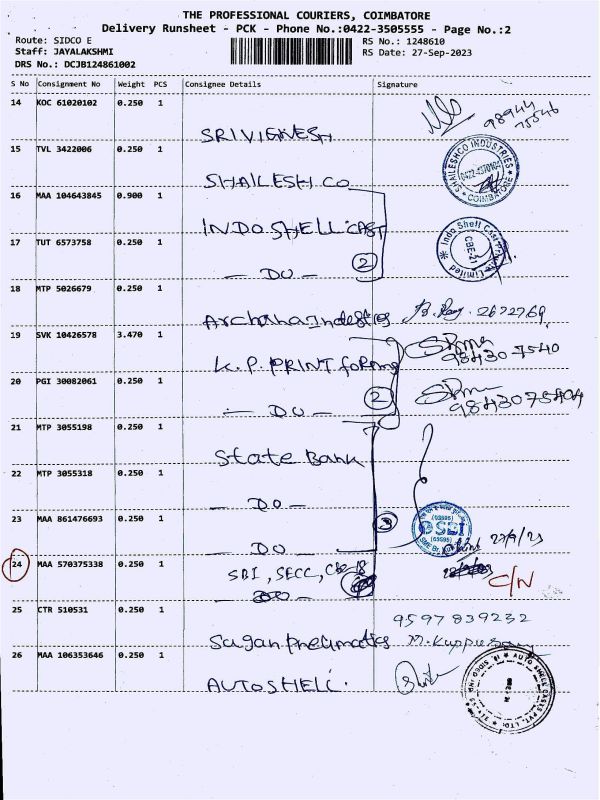 THE PROFESSIONAL COURIERS, COIMBATORE
Delivery Runsheet - PCK - Phone No.:0422-3505555 - Page No.:2
Route: SIDCO E
RS No.: 1248610
Staff: JAYALAKSHMI
RS Date: 27-Sep-2023
DRS No.: DCJB124861002
S No Consignment No Weight PCS Consignee Details Signature
14 KOC 61020102 0.250 1
98944
75546
SRI VIGNESH
15 TVL 3422006 0.250 1
SHAILESHCO INDUSTRIES
0422-4370104
COIMBATORE
SHAILESH CO
16 MAA 104643845 0.900 1
INDO SHELL CAST
Indo Shell Cast Private Limited
CBE-21
17 TUT 6573758 0.250 1
2
- DO -
18 MTP 5026679 0.250 1
Archana Indesties 2672769
19 SVK 10426578 3.470 1
K.P. PRINT forms
984307540
20 PGI 30082061 0.250 1
2
- DO -
21 MTP 3055198 0.250 1
State Bank
22 MTP 3055318 0.250 1
- DO -
23 MAA 861476693 0.250 1
3
SBI
- DO -
27/9/23
24 MAA 570375338 0.250 1
SBI, SECC, CBE-18
C/N
25 CTR 510531 0.250 1
9597839232
Sugan pneumatics M. Kuppusamy
26 MAA 106353646 0.250 1
AUTOSHELL.
AUTO SHELL CASTS PVT. LTD.